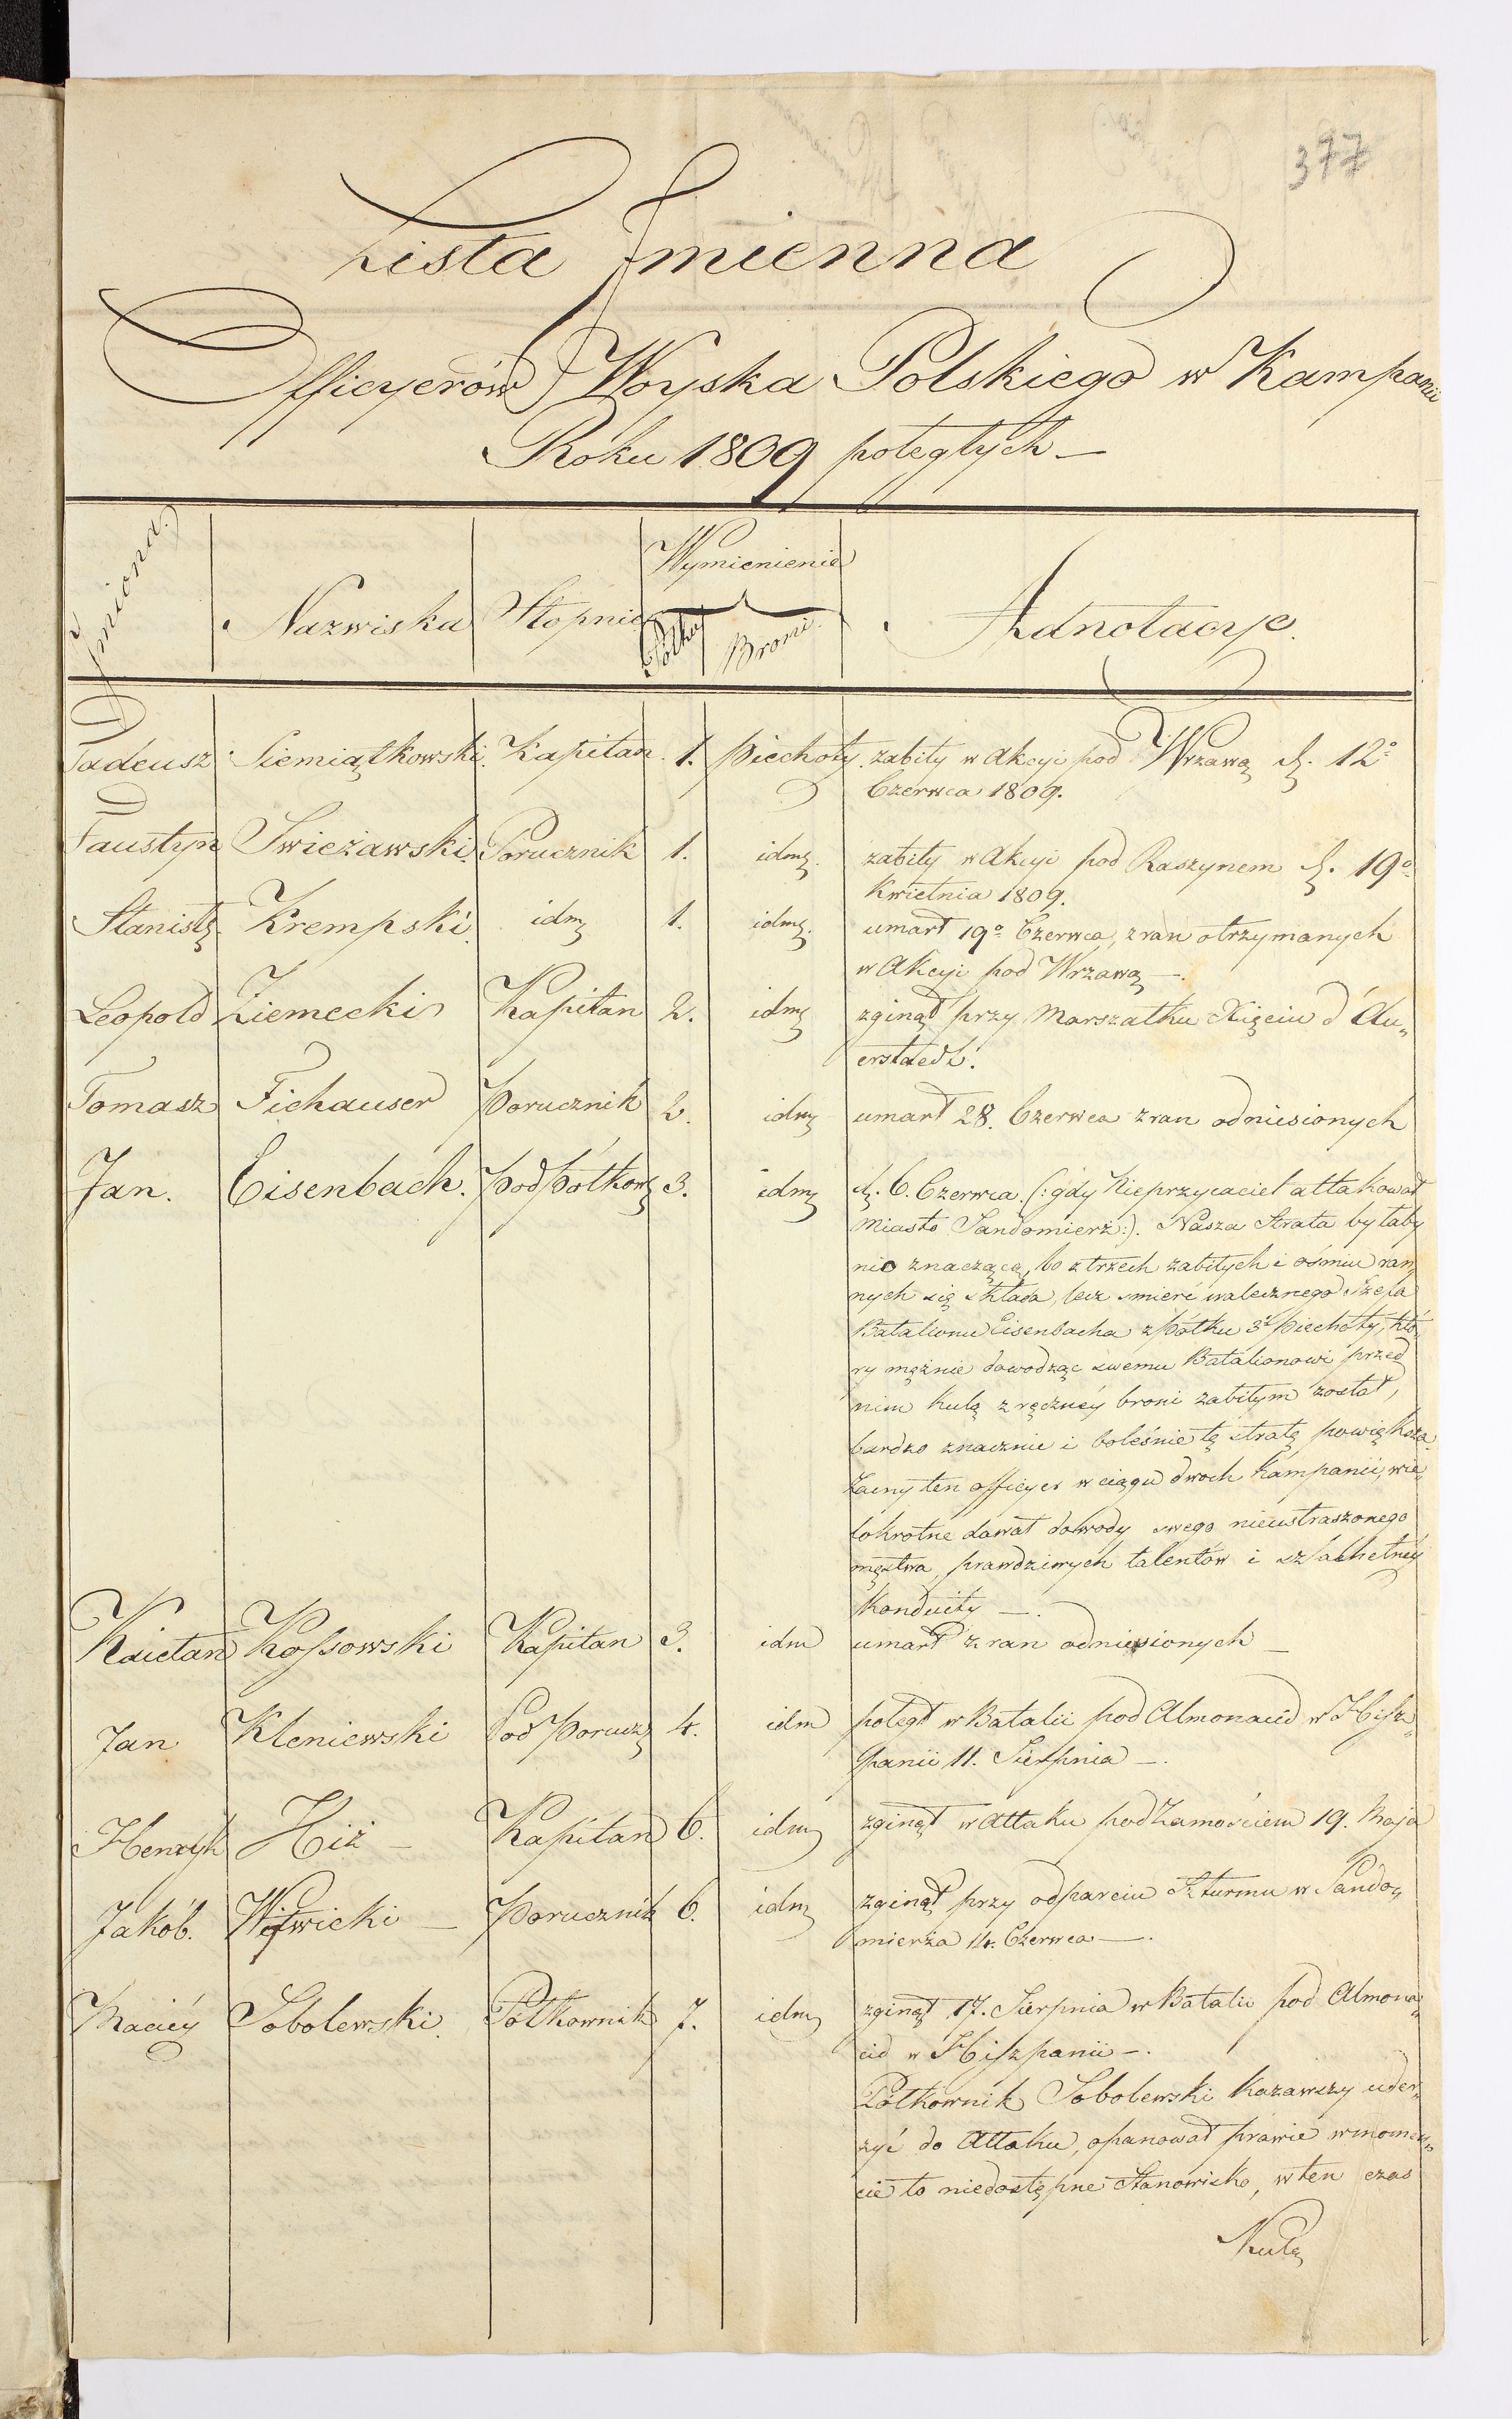 377
Lista Jmienna
Officyerów Woyska Polskiego w Kampanii
Roku 1809 poległych —
Jmiona. Nazwiska Stopnie Wymienienie Pólku Broni. Adnotacye.
Tadeusz Siemiątkowski. Kapitan. 1. Piechoty. zabity w Akcyi pod Wrzawą d. 12º
Czerwca 1809.
Faustyn Swieżawski. Porucznik 1. idm. zabity w Akcyi pod Raszynem d. 19º
Kwietnia 1809.
Stanisł. Krempski. idm 1. idm. umarł 19º Czerwca, z ran otrzymanych
w Akcyi pod Wrzawą —.
Leopold Ziemecki Kapitan 2. idm zginął przy Marszałku Xięciu d'Au„
erstaedt.
Tomasz Fichauser Porucznik 2. idm umarł 28. Czerwca z ran odniesionych
Jan. Eisenbach. Podpółkow 3. idm d. 6. Czerwca. (: gdy Nieprzyiaciel attakował
Miasto Sandomierz :). Nasza Strata byłaby
nic znaczącą, bo z trzech zabitych i ośmiu ran„
nych się składa, lecz smierć walecznego Szefa
Batalionu Eisenbacha z półku 3º Piechoty, któ„
ry mężnie dowodząc swemu Batalionowi przed
nim kulą z ręczney broni zabitym został,
bardzo znacznie i boleśnie tę stratę powiększa.
Zacny ten officyer w ciągu dwoch kampanii, wie„
lokrotne dawał dowody swego nieustraszonego
męztwa, prawdziwych talentów i szlachetney
konduity —.
Kaietan Koſsowski Kapitan 3. idm umarł z ran odniesionych —
Jan Kleniewski Pod Porucz 4. idm poległ w Batalii pod Almonacid w Hisz„
panii 11. Sierpnia —.
Henryk Hiż — Kapitan 6. idm zginął w Attaku pod Zamościem 19. Maja
Jakób. Witwicki — Porucznik 6. idm zginął przy odparciu Szturmu w Sando„
mierza 14. Czerwca —.
Maciéy Sobolewski. Półkownik 7. idm zginął 17. Sierpnia w Batalii pod Almona„
cid w Hiszpanii —.
Półkownik Sobolewski kazawszy uder„
zyć do Attaku, opanował prawie w momen„
cie to niedostępne Stanowisko, w ten czas
Kulą